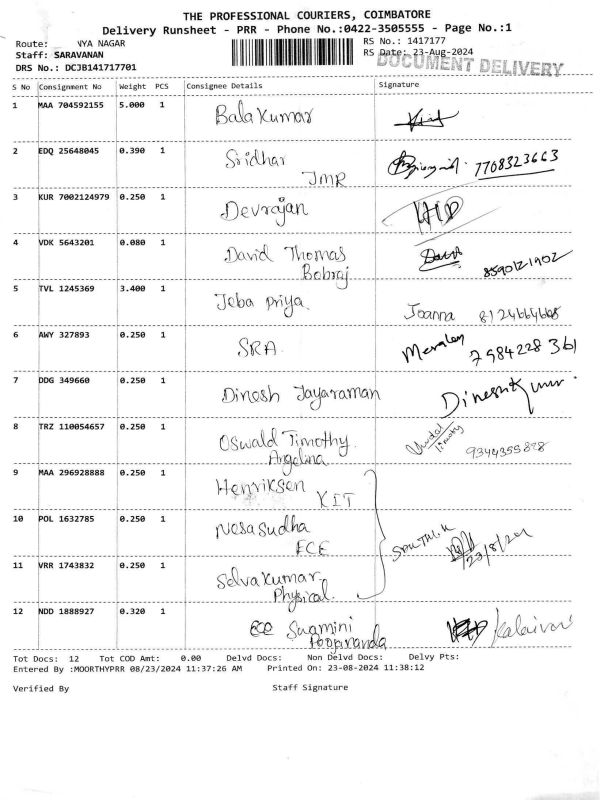 THE PROFESSIONAL COURIERS, COIMBATORE
Delivery Runsheet - PRR - Phone No.:0422-3505555 - Page No.:1
Route: NYA NAGAR
RS No.: 1417177
Staff: SARAVANAN
RS Date: 23-Aug-2024
DRS No.: DCJB141717701
DOCUMENT DELIVERY
S No Consignment No Weight PCS Consignee Details Signature
1 MAA 704592155 5.000 1 Bala Kumar
2 EDQ 25648045 0.390 1 Sridhar JMR 7708323663
3 KUR 7002124979 0.250 1 Devrajan
4 VDK 5643201 0.080 1 David Thomas Bobraj David 8590121902
5 TVL 1245369 3.400 1 Jeba priya Joanna 8124664668
6 AWY 327893 0.250 1 SRA. 7984228361
7 DDG 349660 0.250 1 Dinesh Jayaraman Dinesh Kumar.
8 TRZ 110054657 0.250 1 Oswald Timothy Angelina 9344355828
9 MAA 296928888 0.250 1 Henriksen KIT
10 POL 1632785 0.250 1 Nesasudha ECE
11 VRR 1743832 0.250 1 Selvakumar Physical.
12 NDD 1888927 0.320 1 Swamini
Tot Docs: 12 Tot COD Amt: 0.00 Delvd Docs: Non Delvd Docs: Delvy Pts:
Entered By :MOORTHYPRR 08/23/2024 11:37:26 AM Printed On: 23-08-2024 11:38:12
Verified By Staff Signature